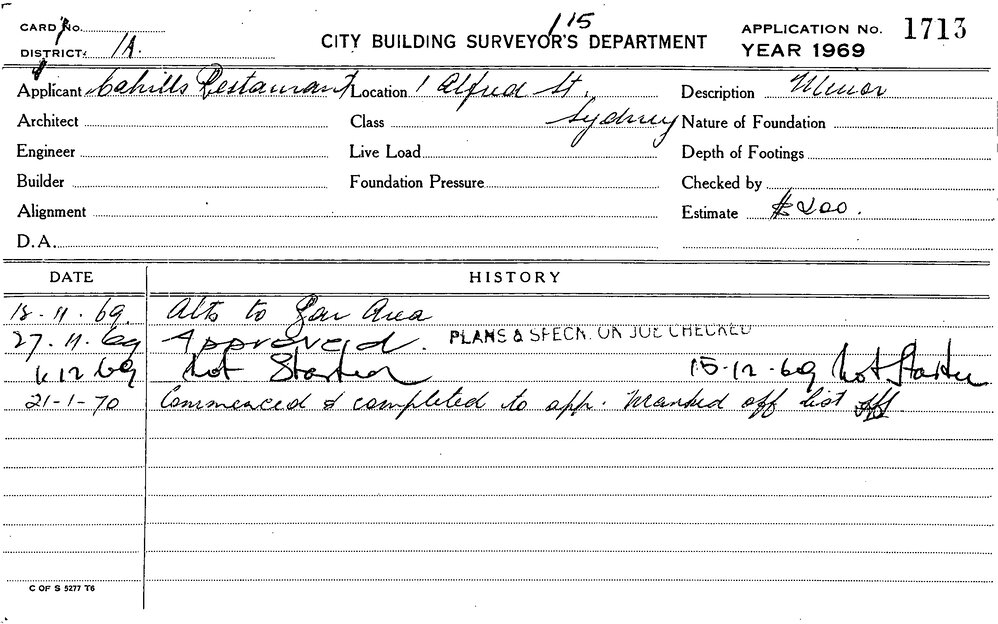 CARD No.
115
APPLICATION No. 1713
DISTRICT: 1A.
CITY BUILDING SURVEYOR'S DEPARTMENT
YEAR 1969
Applicant Cahills Restaurant Location 1 Alfred St. Description Minor
Architect Class Sydney Nature of Foundation
Engineer Live Load Depth of Footings
Builder Foundation Pressure Checked by
Alignment Estimate $200.
D.A.
DATE HISTORY
18.11.69. Alts to Bar Area
27.11.69 Approved. PLANS & SPECN. ON JOB CHECKED
1.12.69 Not Started 15-12-69 Not Started
21-1-70 Commenced & completed to app. Marked off list
C OF S 5277 T6